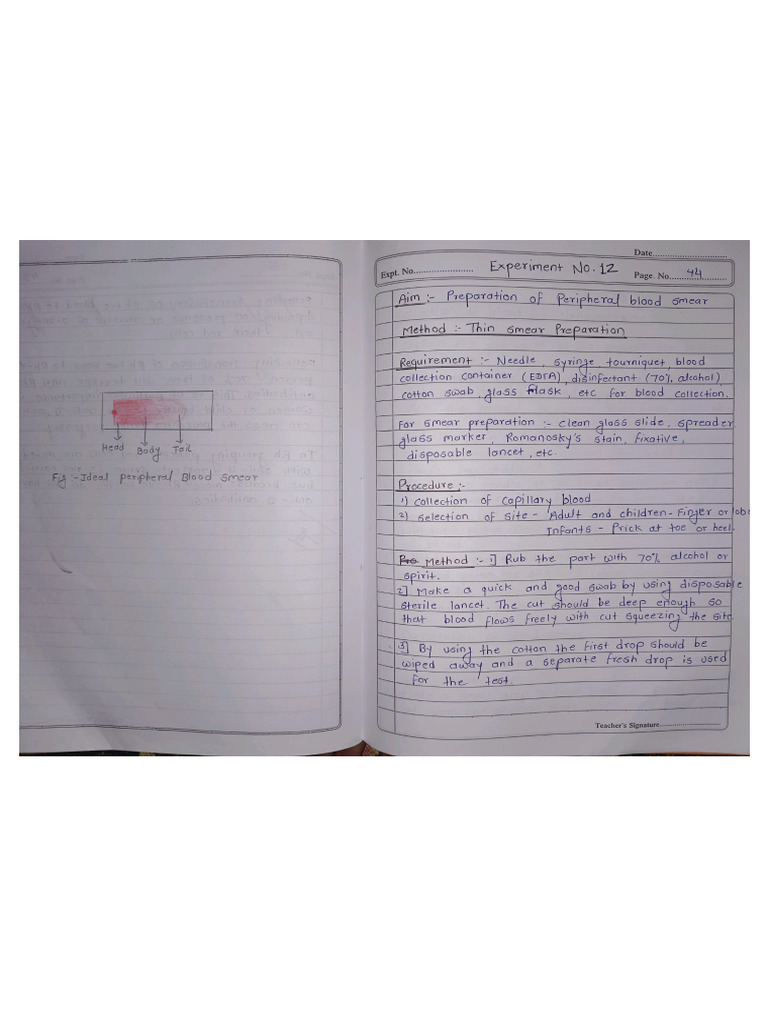 Head Body Tail
Fig :- Ideal peripheral Blood smear
Date
Expt. No. Experiment No. 12 Page. No. 44
Aim :- Preparation of Peripheral blood smear
Method :- Thin smear Preparation
Requirement :- Needle syringe tourniquet, blood
collection container (EDTA), disinfectant (70% alcohol),
cotton swab, glass flask, etc for blood collection.
For smear preparation :- clean glass slide, spreader
glass marker, Romanosky's stain, fixative,
disposable lancet, etc.
Procedure :-
1) collection of capillary blood
2) selection of site - Adult and children - Finger or lobe
Infants - Prick at toe or heel.
Method :- 1] Rub the part with 70% alcohol or
spirit.
2] Make a quick and good swab by using disposable
sterile lancet. The cut should be deep enough so
that blood flows freely with cut squeezing the site
3] By using the cotton the first drop should be
wiped away and a separate fresh drop is used
for the test.
Teacher's Signature